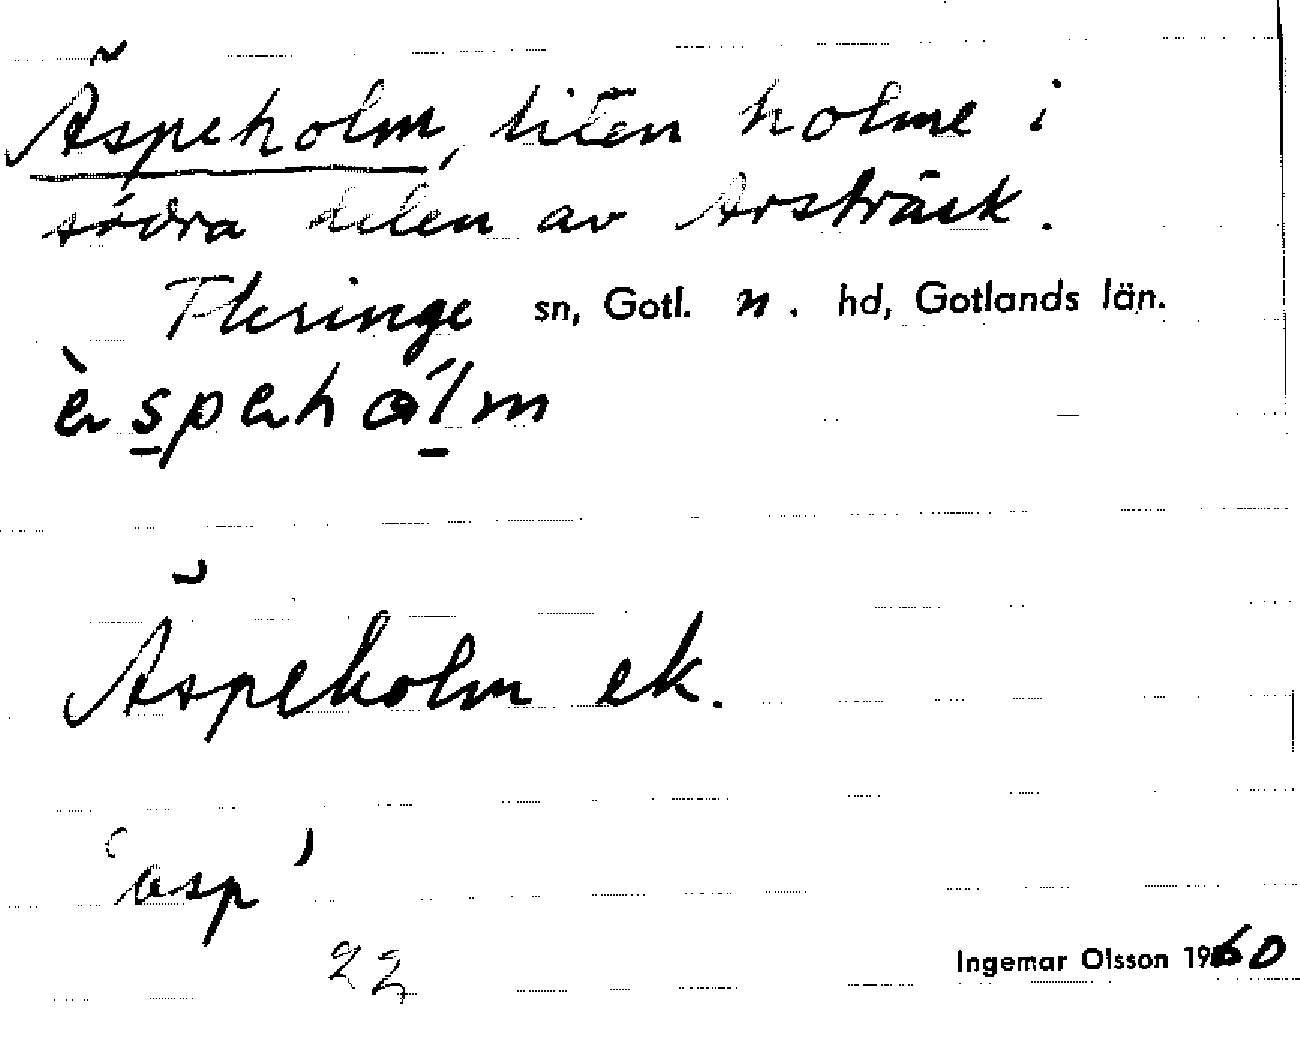 Äspeholm, liten holme i
södra delen av Arsträsk.
Fleringe sn, Gotl. n. hd, Gotlands län.
Äspeholm ek.
'asp'
22
Ingemar Olsson 1960